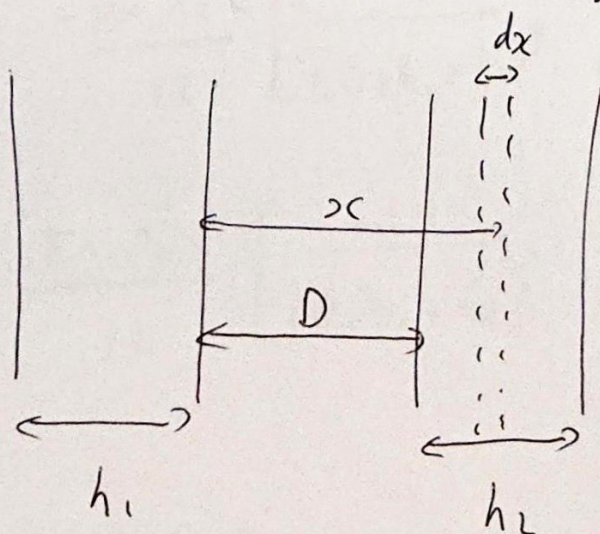 dx
x
D
h₁
h₂